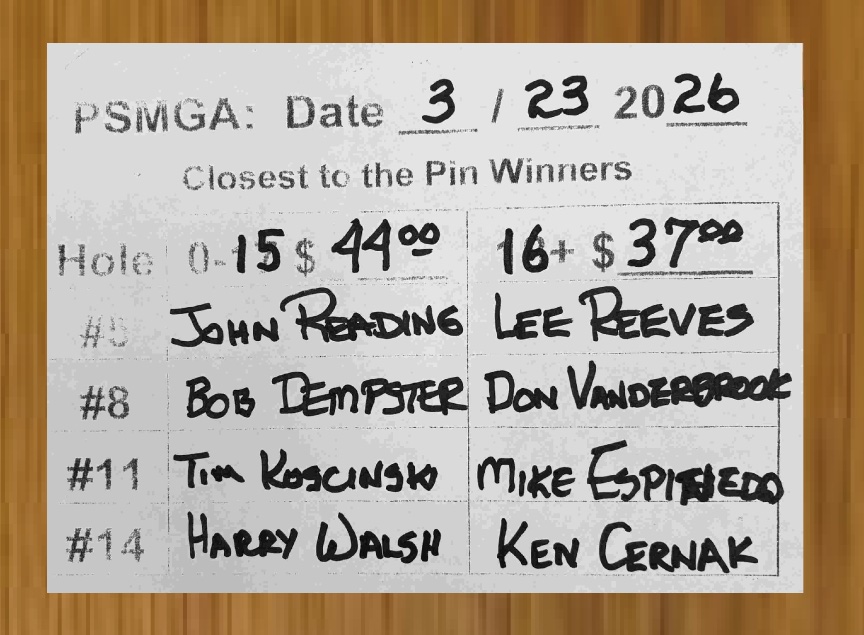 PSMGA: Date 3 / 23 2026
Closest to the Pin Winners
Hole 0-15 $ 44.00 16+ $ 37.00
#5 JOHN READING LEE REEVES
#8 BOB DEMPSTER DON VANDERBROOK
#11 TIM KOSCINSKI MIKE
#14 HARRY WALSH KEN CERNAK